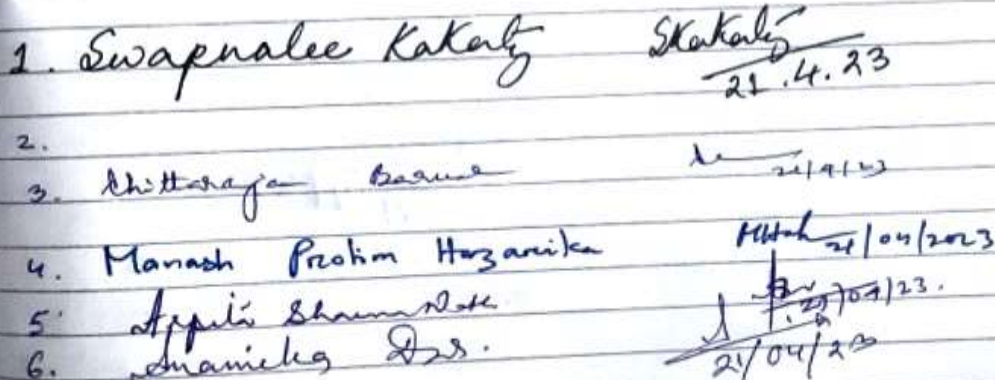 1. Swapnalee Kakaty SKakaty
21.4.23
2.
3. Chittaranjan Barua 21/4/23
4. Manash Protim Hazarika 21/04/2023
5. Arpita 21/04/23.
6. Anamika Das.
21/04/23